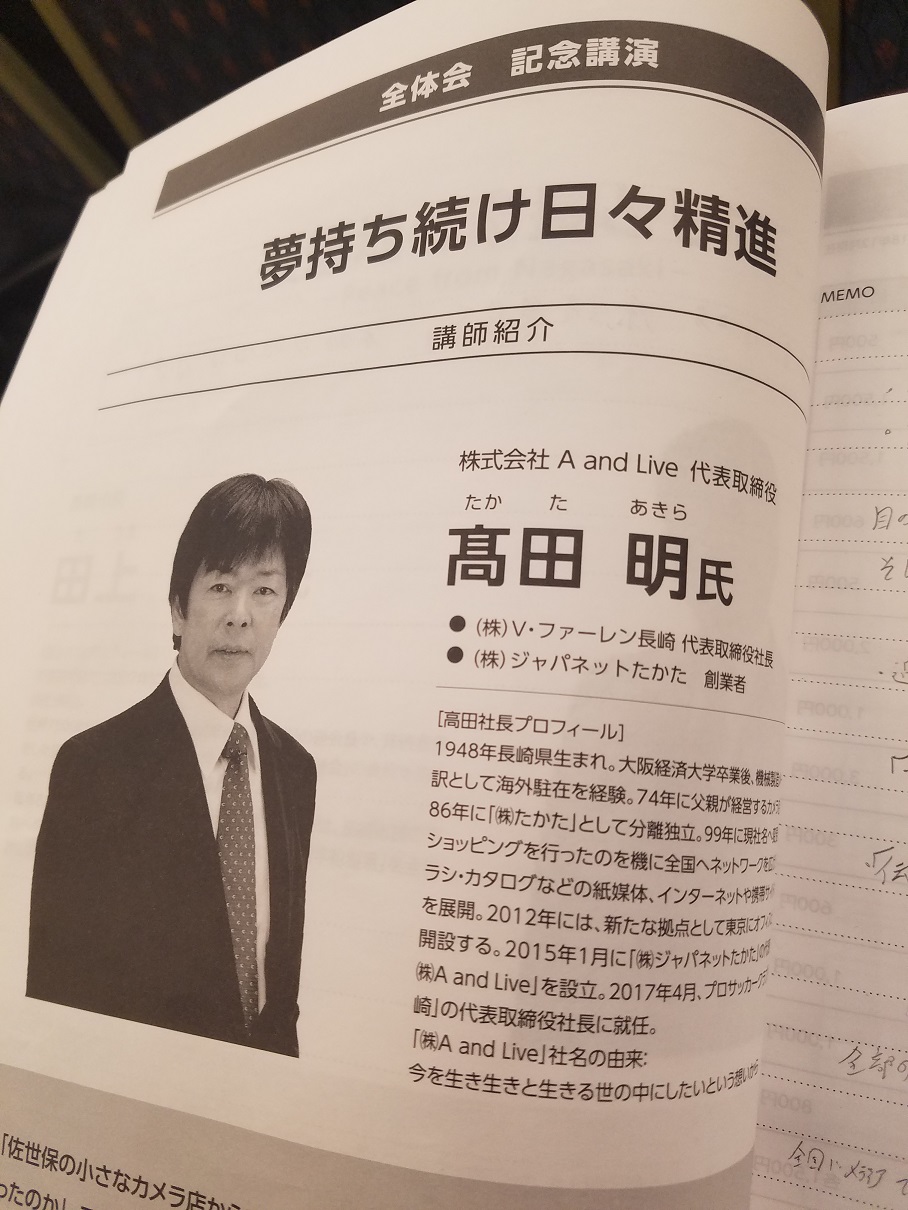 全体会 記念講演
夢持ち続け日々精進
講師紹介
株式会社 A and Live 代表取締役
たか た あきら
髙田 明氏
● (株)V・ファーレン長崎 代表取締役社長
● (株)ジャパネットたかた 創業者
[高田社長プロフィール]
1948年長崎県生まれ。大阪経済大学卒業後、機械製造
訳として海外駐在を経験。74年に父親が経営するカメラ
86年に「㈱たかた」として分離独立。99年に現社名へ
ショッピングを行ったのを機に全国へネットワークを
ラシ・カタログなどの紙媒体、インターネットや携帯サイ
を展開。2012年には、新たな拠点として東京にオフィ
開設する。2015年1月に「㈱ジャパネットたかた」の
㈱A and Live」を設立。2017年4月、プロサッカーク
崎」の代表取締役社長に就任。
「㈱A and Live」社名の由来:
今を生き生きと生きる世の中にしたいという想いから
「佐世保の小さなカメラ店から
ったのか」
MEMO
目の
全部の
今回